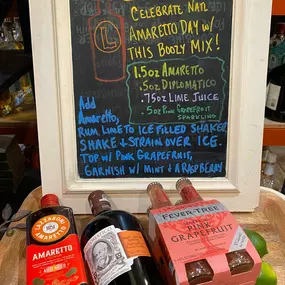 Celebrate Natl
Amaretto Day w/
This Boozy Mix!
1.5oz Amaretto
.5oz Diplomatico
.75oz Lime Juice
.5oz Pink Grapefruit
Sparkling
Add
Amaretto,
Rum, Lime to Ice Filled Shaker
Shake & Strain over Ice.
Top w/ Pink Grapefruit,
Garnish w/ Mint & A Raspberry
LAZZARONI
AMARETTO
AMARETTO
FEVER-TREE
PINK
GRAPEFRUIT